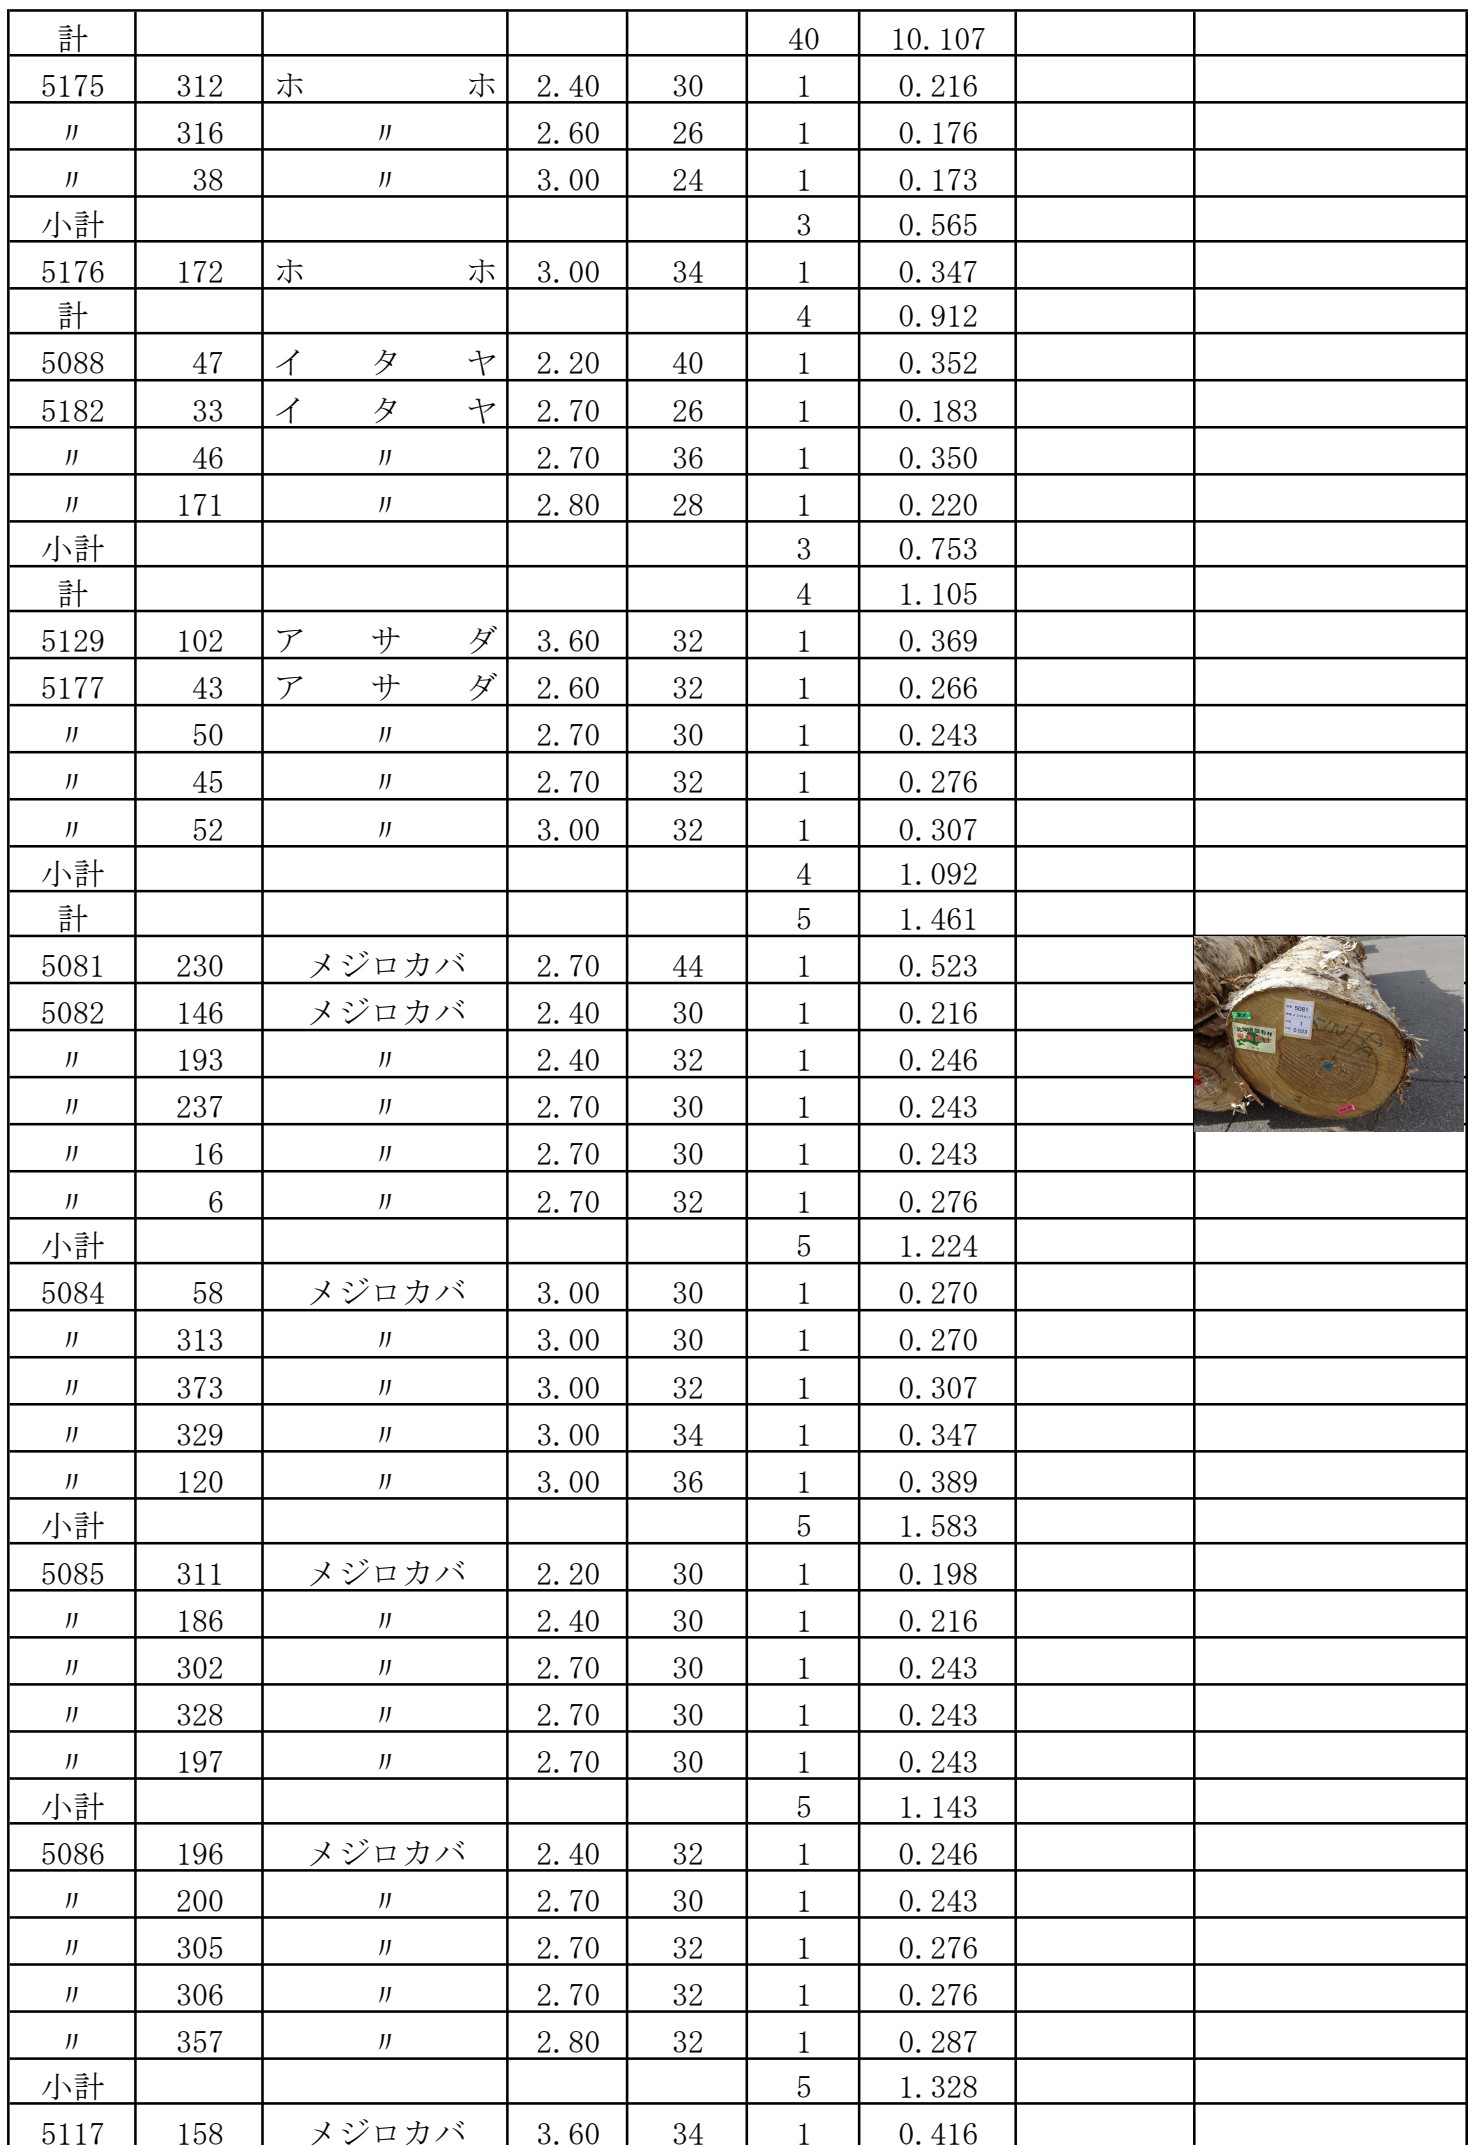 計 40 10.107
5175 312 ホ ホ 2.40 30 1 0.216
〃 316 〃 2.60 26 1 0.176
〃 38 〃 3.00 24 1 0.173
小計 3 0.565
5176 172 ホ ホ 3.00 34 1 0.347
計 4 0.912
5088 47 イ タ ヤ 2.20 40 1 0.352
5182 33 イ タ ヤ 2.70 26 1 0.183
〃 46 〃 2.70 36 1 0.350
〃 171 〃 2.80 28 1 0.220
小計 3 0.753
計 4 1.105
5129 102 ア サ ダ 3.60 32 1 0.369
5177 43 ア サ ダ 2.60 32 1 0.266
〃 50 〃 2.70 30 1 0.243
〃 45 〃 2.70 32 1 0.276
〃 52 〃 3.00 32 1 0.307
小計 4 1.092
計 5 1.461
5081 230 メジロカバ 2.70 44 1 0.523
5082 146 メジロカバ 2.40 30 1 0.216
〃 193 〃 2.40 32 1 0.246
〃 237 〃 2.70 30 1 0.243
〃 16 〃 2.70 30 1 0.243
〃 6 〃 2.70 32 1 0.276
小計 5 1.224
5084 58 メジロカバ 3.00 30 1 0.270
〃 313 〃 3.00 30 1 0.270
〃 373 〃 3.00 32 1 0.307
〃 329 〃 3.00 34 1 0.347
〃 120 〃 3.00 36 1 0.389
小計 5 1.583
5085 311 メジロカバ 2.20 30 1 0.198
〃 186 〃 2.40 30 1 0.216
〃 302 〃 2.70 30 1 0.243
〃 328 〃 2.70 30 1 0.243
〃 197 〃 2.70 30 1 0.243
小計 5 1.143
5086 196 メジロカバ 2.40 32 1 0.246
〃 200 〃 2.70 30 1 0.243
〃 305 〃 2.70 32 1 0.276
〃 306 〃 2.70 32 1 0.276
〃 357 〃 2.80 32 1 0.287
小計 5 1.328
5117 158 メジロカバ 3.60 34 1 0.416
5081
1
0.523